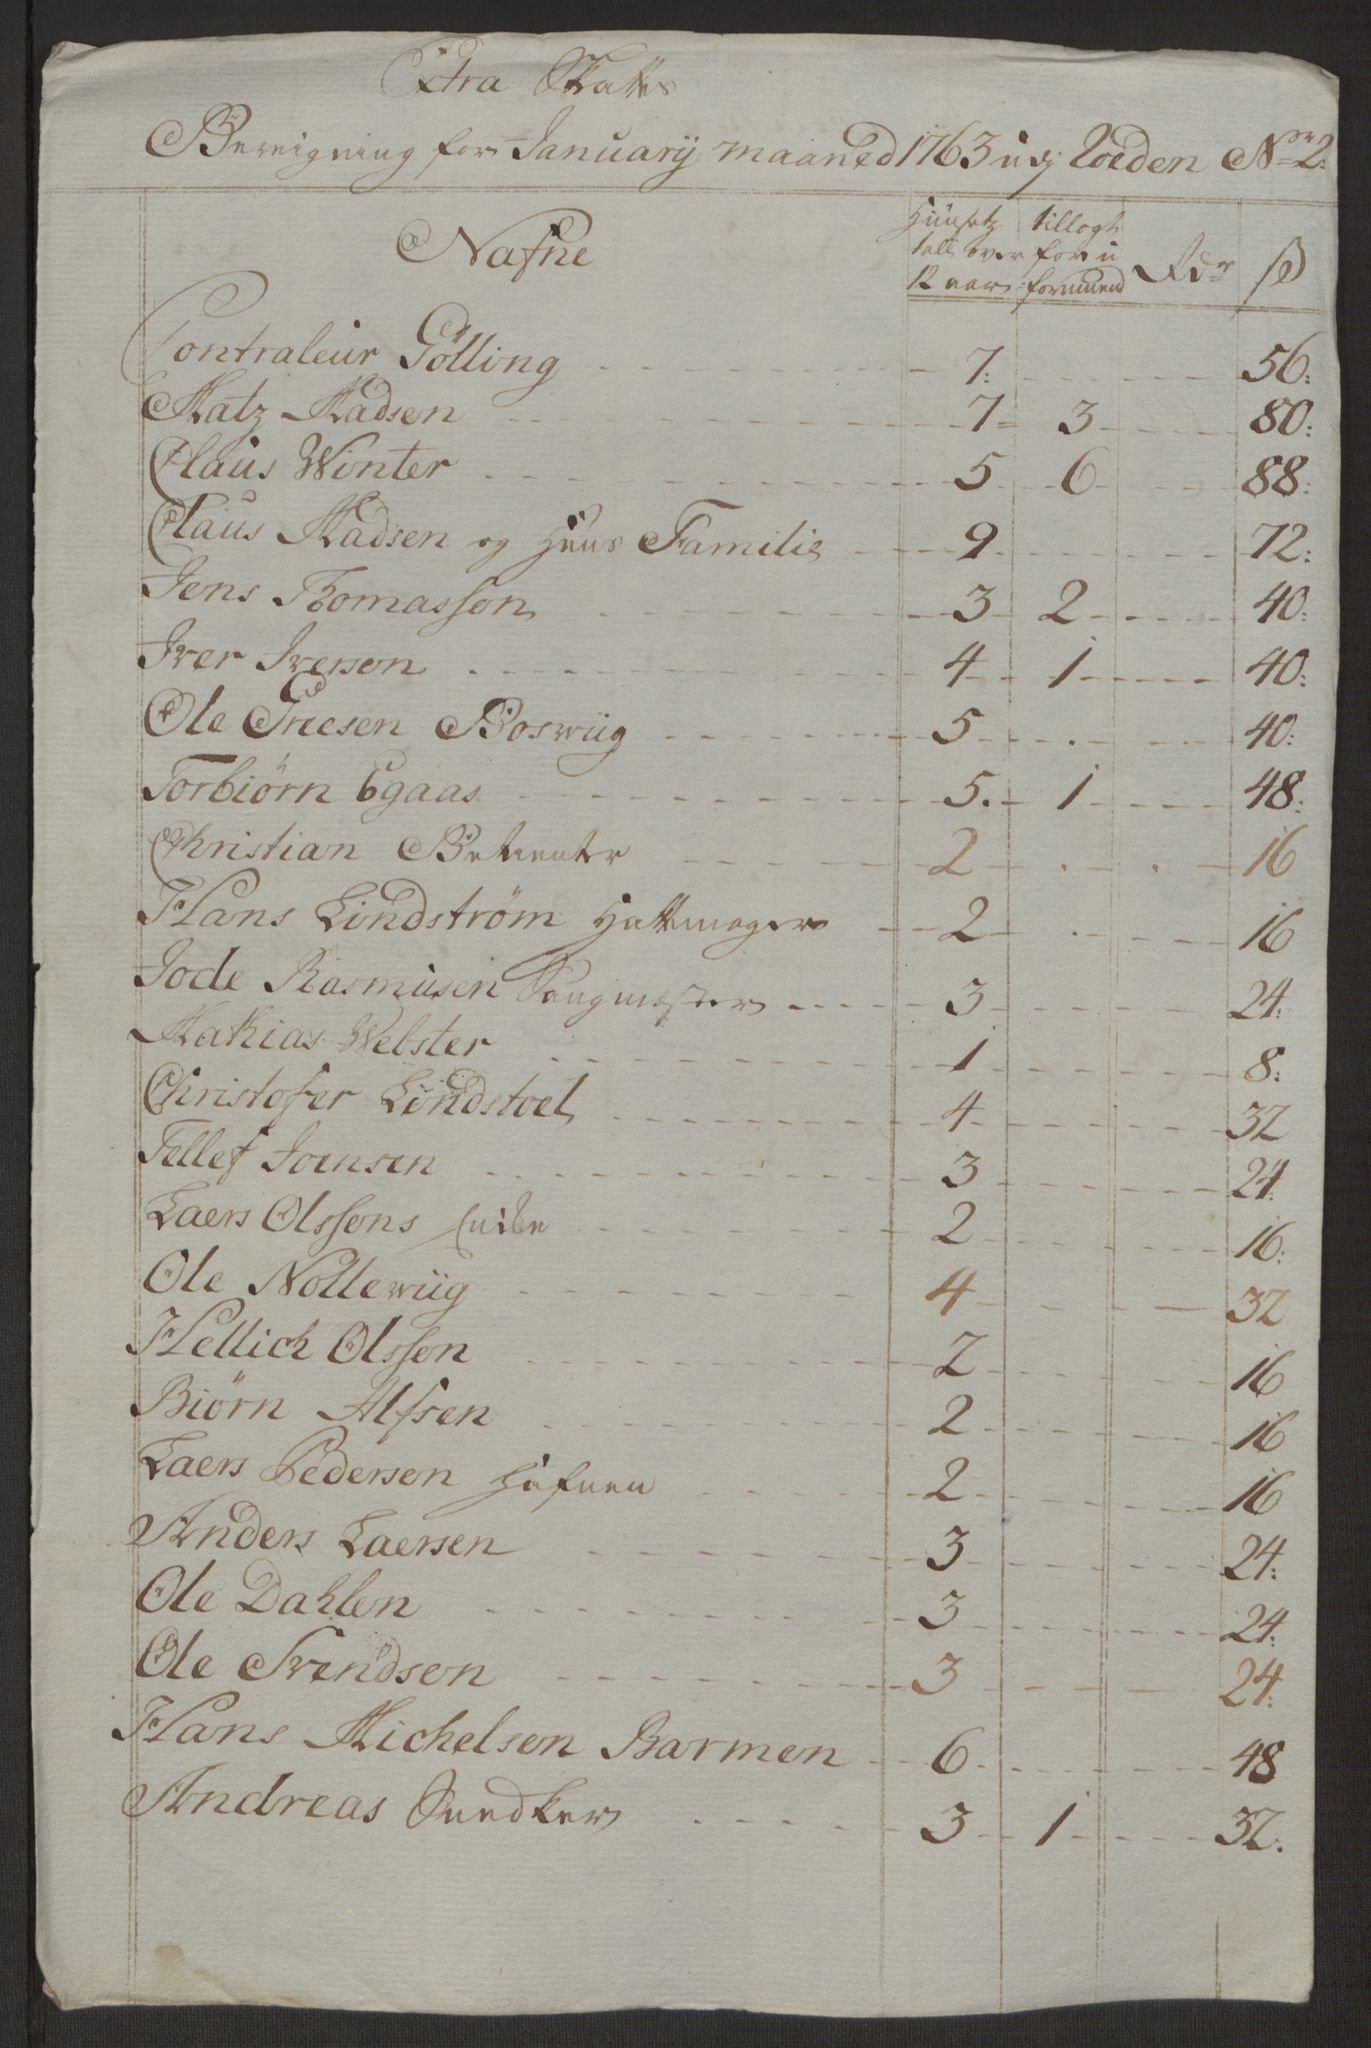 Extra Skatts
Bereigning for January maaned 1763 udj Roeden No 2:
Nafne
tall over
12 aar
tillegt
for u
formuend
Rdr
ß
Contraleur Gölling 7: 56:
Matz Madsen 7 3 80:
Claus Winter 5 6 88:
Claus Madsen og Huus Familie 9 72:
Jens Thomasson 3 2 40:
Iver Iverson 4 1 40:
Ole Boswiig 5 40:
Torbiörn Egaas 5. 1 48:
Christian Betienter 2 16
Hans Lindström Hattmager 2 16
Jode Rasmusen Saugmester 3 24:
Mathias Webster 1 8:
Christofer Lindstoel 4 32
Tellef Joensen 3 24:
Laers Olssons Encke 2 16:
Ole Nollewiig 4 32
Hellich Olsson 2 16
Biörn Alfsen 2 16
Laers Pedersen Hafnen 2 16
Anders Laersen 3 24:
Ole Dahlen 3 24:
Ole Svendsen 3 24:
Hans Michelsen Barmen 6 48
Andreas Snedker 3 1 32.